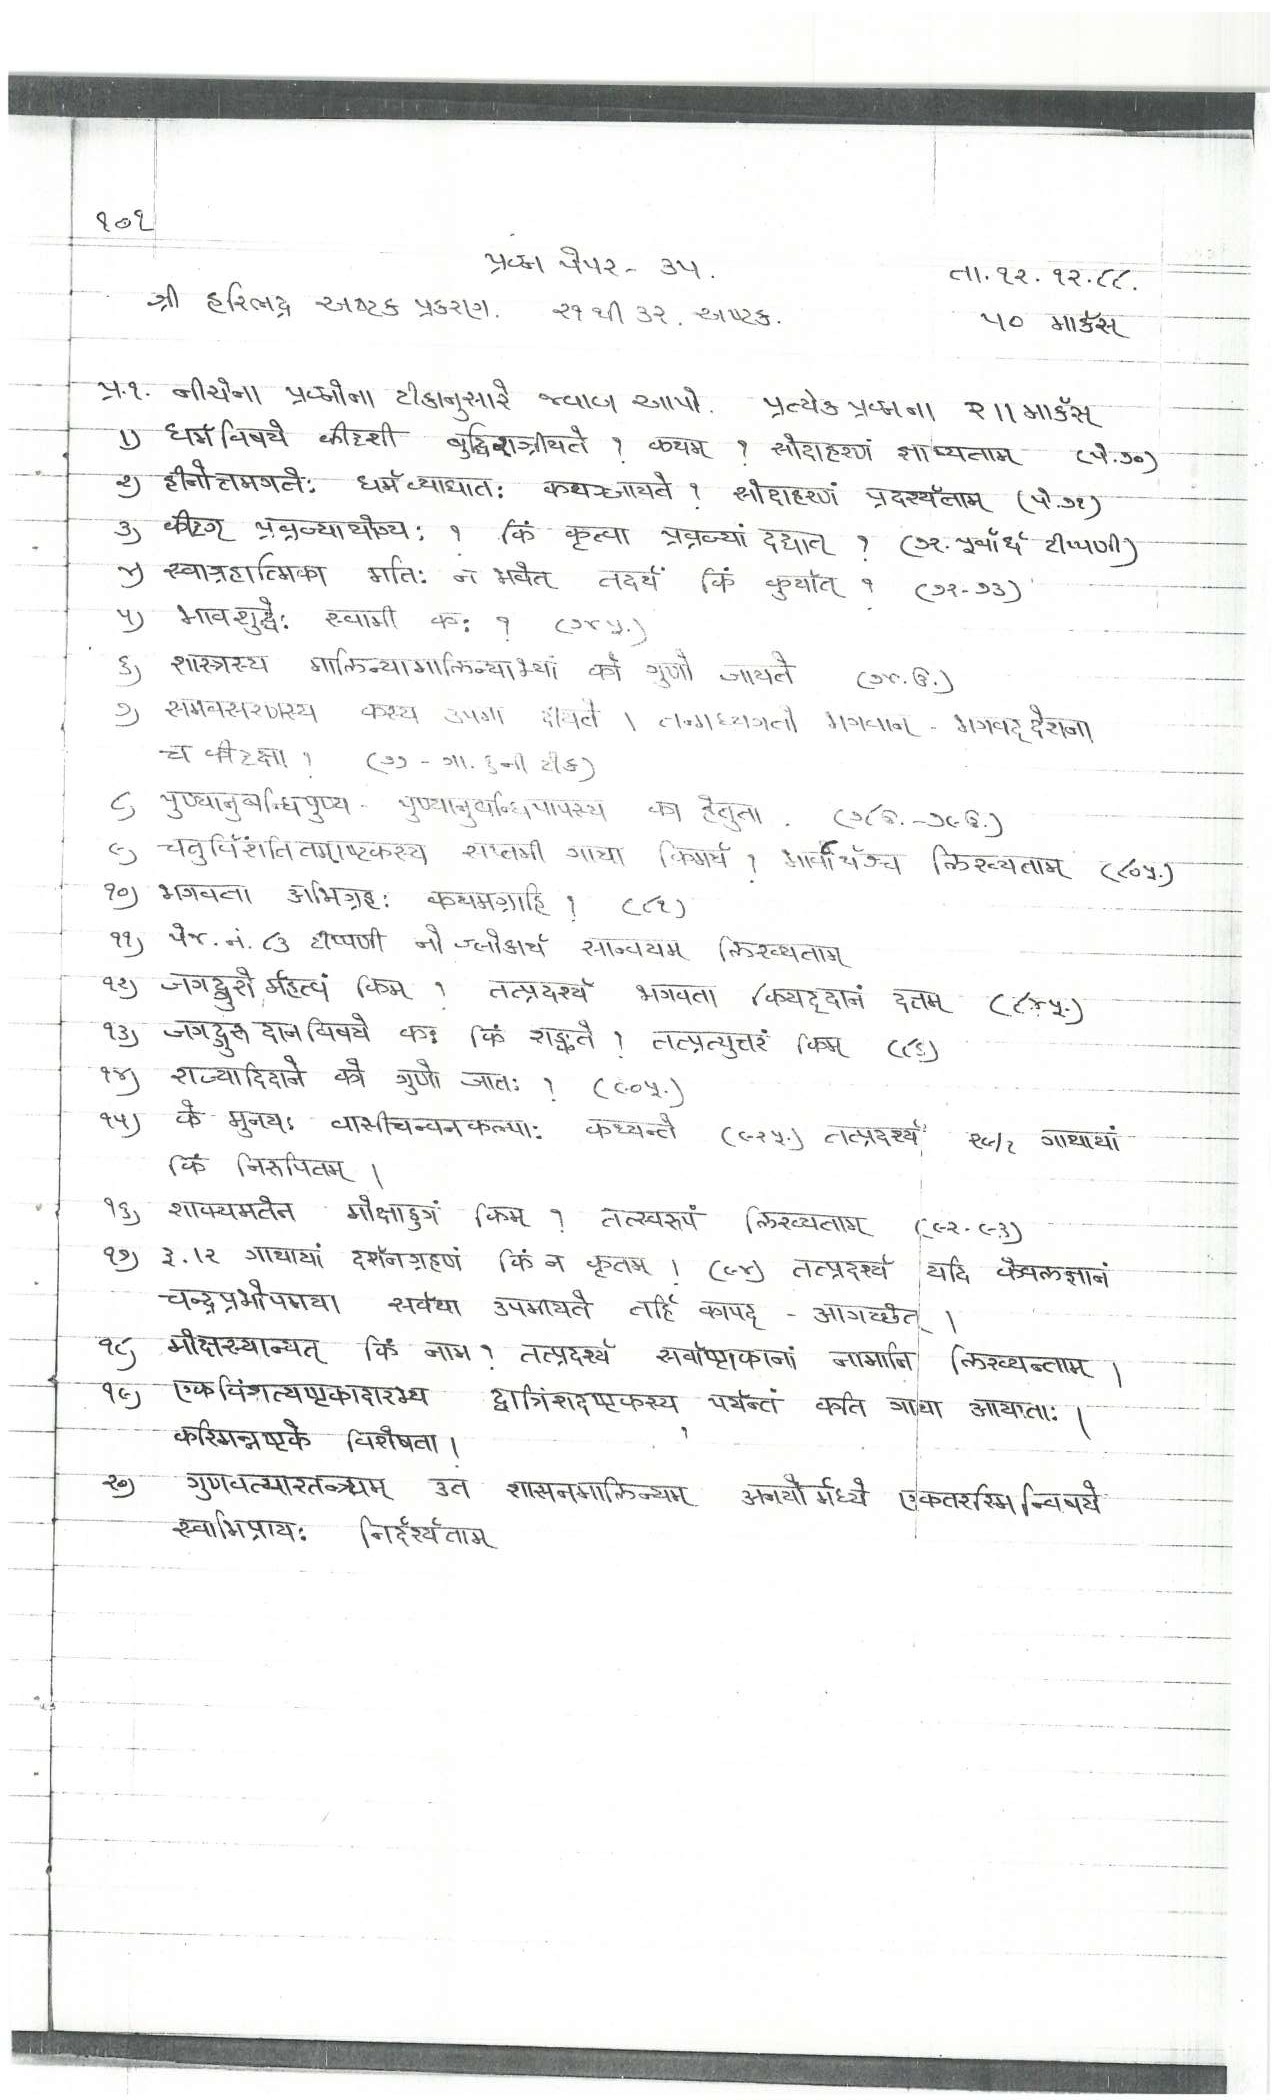 १०१
પ્રશ્ન પેપર - ૩૫.
તા. ૧૨. ૧૨. ૮૮.
શ્રી હરિભદ્ર અષ્ટક પ્રકરણ. ૨૧ થી ૩૨. અષ્ટક.
૫૦ માર્કસ
પ્ર.૧. નીચેના પ્રશ્નોના ટીકાનુસારે જવાબ આપો. પ્રત્યેક પ્રશ્નના ૨ ।। માર્કસ
૧) धर्मविषये कीदृशी बुद्धिराश्रीयते ? कथम् ? सोदाहरणं ज्ञाप्यताम् (पे.७०)
૨) हीनोत्तमगतेः धर्मव्याघातः कथञ्जायते ? सोदाहरणं प्रदर्श्यताम् (पे.७१)
૩) कीदृग् प्रव्रज्यायोग्यः ? किं कृत्वा प्रव्रज्यां दद्यात् ? (७२. पूर्वार्ध टीप्पणी)
૪) स्वाग्रहात्मिका मतिः न भवेत् तदर्थं किं कुर्यात् ? (७२-७३)
૫) भावशुद्धेः स्वामी कः ? (७४पू.)
૬) शास्त्रस्य मालिन्यामालिन्याभ्यां कौ गुणौ जायते (७४.उ.)
૭) समवसरणस्य कस्य उपमा दीयते । तन्मध्यगतो भगवान् - भगवद्देशना
च कीदृक्षा ? (७७ - गा. ६नी टीक)
૮) पुण्यानुबन्धिपुण्य - पुण्यानुबन्धिपापस्य का हेतुता . (७८उ.-७९उ.)
૯) चतुर्विंशतितमाष्टकस्य सप्तमी गाथा किमर्थं ? भावार्थञ्च लिख्यताम् (८०पू.)
૧૦) भगवता अभिग्रहः कथमग्राहि ? (८१)
૧૧) પેજ. નં. ૮૩ टीप्पणी नो श्लोकार्थ सान्वयम् लिख्यताम्
૧૨) जगद्गुरोर्महत्वं किम् ? तत्प्रदर्श्य भगवता कियद्दानं दत्तम् (८४पू.)
૧૩) जगद्गुरुदानविषये कः किं शङ्कते ? तत्प्रत्युत्तरं किम् (८६)
૧૪) राज्यादिदाने को गुणो जातः ? (९०पू.)
૧૫) के मुनयः वासीचन्दनकल्पाः कथ्यन्ते (९२पू.) तत्प्रदर्श्य २९/२ गाथायां
किं निरुपितम् ।
૧૬) शाक्यमतेन मोक्षाङ्गं किम् ? तत्स्वरुपं लिख्यताम् (९२-९३)
૧૭) ३०।२ गाथायां दर्शनग्रहणं किं न कृतम् । (९४) तत्प्रदर्श्य यदि केवलज्ञानं
चन्द्रप्रभोपमया सर्वथा उपमीयते तर्हि कापद् - आगच्छेत् ।
૧૮) मोक्षस्यान्यत् किं नाम ? तत्प्रदर्श्य सर्वाष्टकानां नामानि लिख्यन्ताम् ।
૧૯) एकविंशत्यष्टकादारभ्य द्वात्रिंशदष्टकस्य पर्यन्तं कति गाथा आयाताः ।
कस्मिन्नष्टके विशेषता ।
૨૦) गुणवत्पारतन्त्र्यम् उत शासनमालिन्यम् अनयोर्मध्ये एकतरस्मिन्विषये
स्वाभिप्रायः निर्दर्श्यताम्